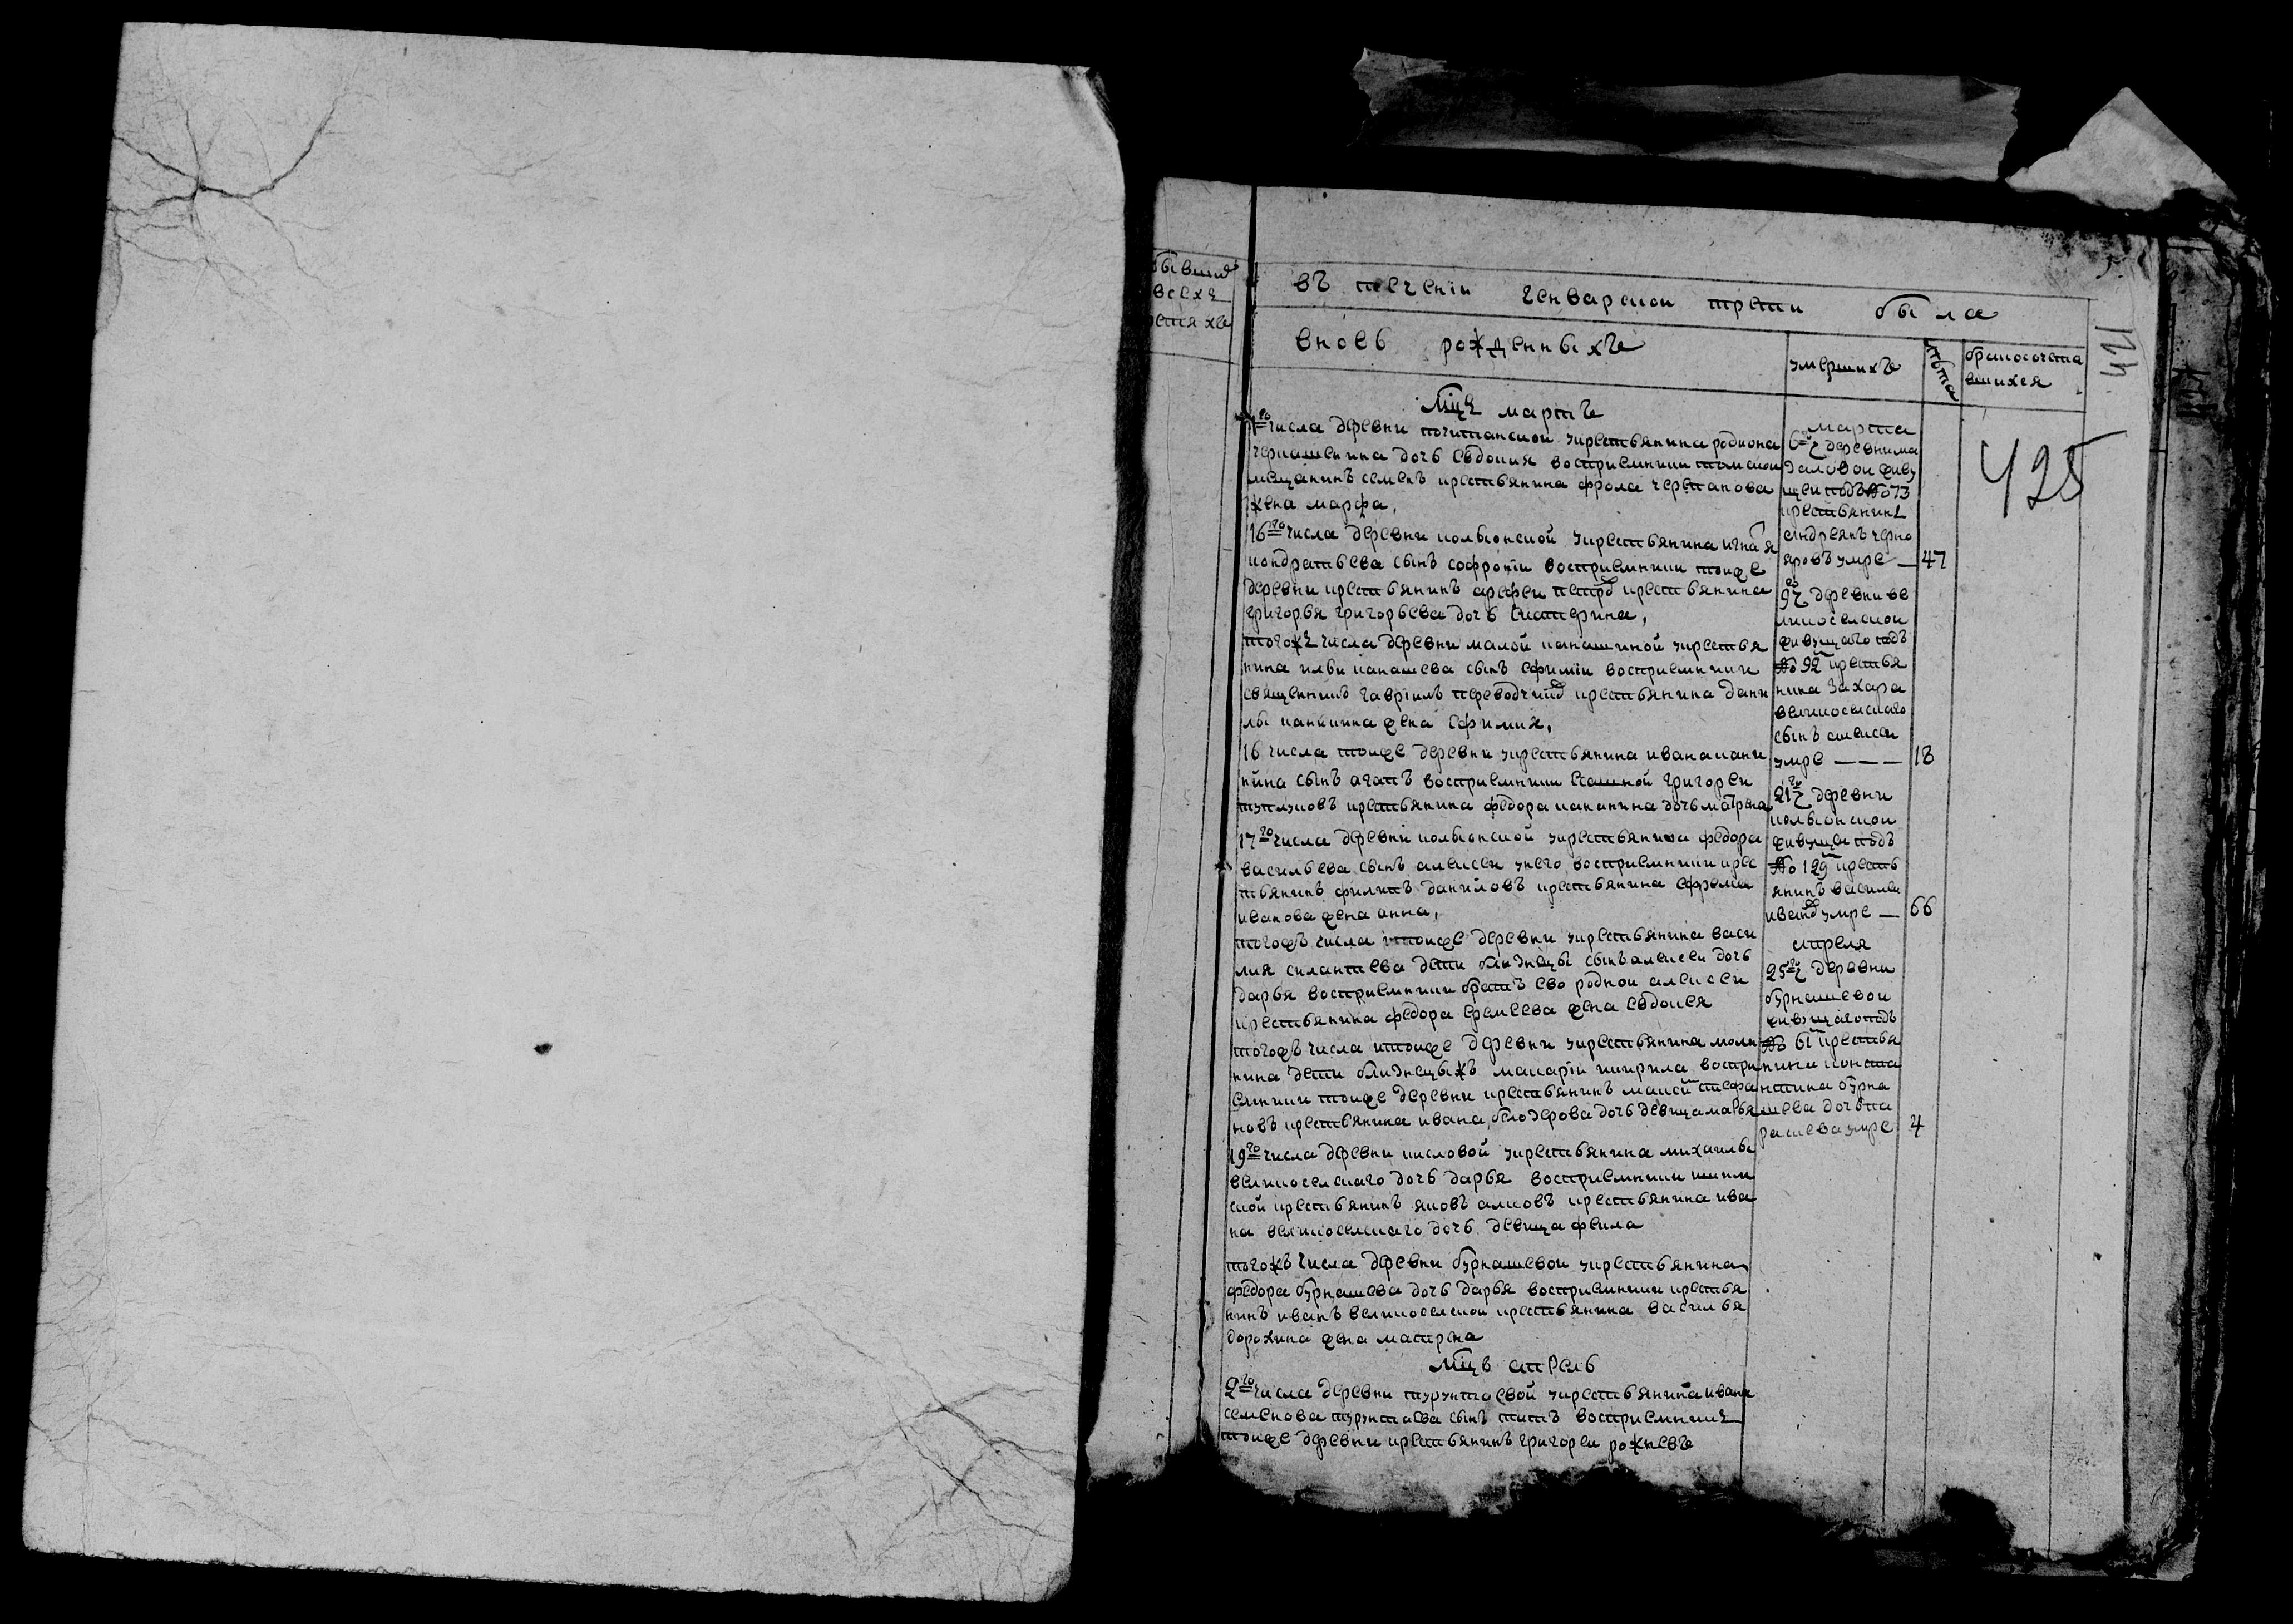 бывши
всехъ
въ течени генварской трети было
вновь рожденныхъ
умершихъ
лѣта
бракосочета
вшихся
421
425
Мцъ мартъ
числа деревни почитанской укрестьянина родиона
чернашенина дочь Евдокия восприемники томской
мещанинъ семенъ крестьянина фрола черепанова
жена марфа,
16го числа деревни колыонской укрестьянина игнатя
кондратьева сынъ софронiи восприемники тоиже
деревни крестьянинъ арефеи крестьянина
григорья григорьева дочь Екатерина,
тогожъ числа деревни малой канашиной укрестья
нина ильи канашева сынъ Ефимiи восприемники
священникъ гаврiилъ переводчико крестьянина дани
лы жена Ефимия,
16 числа тоиже деревни укрестьянина ивана кани
кина сынъ агапъ восприемники Есашной григореи
крестьянина федора канакина дочь матрена
17го числа деревни колыонской укрестьянина федора
васильева сынъ алексеи унего восприемники крес
тьянинъ филипъ даниловъ крестьянина Ефрема
иванова жена анна,
тогожъ числа итоиже деревни укрестьянина васи
лия силантиева дети близнецы сынъ алексеи дочь
дарья восприемники братъ Ево роднои алексеи
крестьянина федора жена Евдокея
тогожъ числа итоиже деревни укрестьянина мали
нина дети близнецыжъ макарiи икирила воспри
Емники тоиже деревни крестьянинъ стефа
новъ крестьянина ивана белозерова дочь девица
19го числа деревни кисловой укрестьянина михаилы
великоселскаго дочь дарья восприемники
крестьянинъ яковъ крестьянина ива
на великоселскаго дочь девица фекла
тогожъ числа деревни бурнашевои укрестьянина
федора бурнашева дочь дарья восприемники крестья
нинъ иванъ великоселскои крестьянина василья
дорохина жена матрена
Мцъ апрель
2го числа деревни турунтаевой укрестьянина ивана
семенова турунтаева сынъ титъ восприемникъ
тоиже деревни крестьянинъ григореи рожневъ
марта
деревни ма
заловои живу
щеи подъ №о 73
крестьянинъ
андреянъ черно
яровъ умре — 47
деревни ве
ликоселскои
живущаго подъ
№о 92 крестья
нина захара
великоселскаго
сынъ алексеи
умре — — — 18
деревни
колыонскои
живущеи подъ
№о 129 кресть
янинъ василеи
умре — 66
апреля
деревни
бурнашевои
живущаго подъ
крестья
нина конста
нтина бурна
шева дочь па
расковеа умре 4